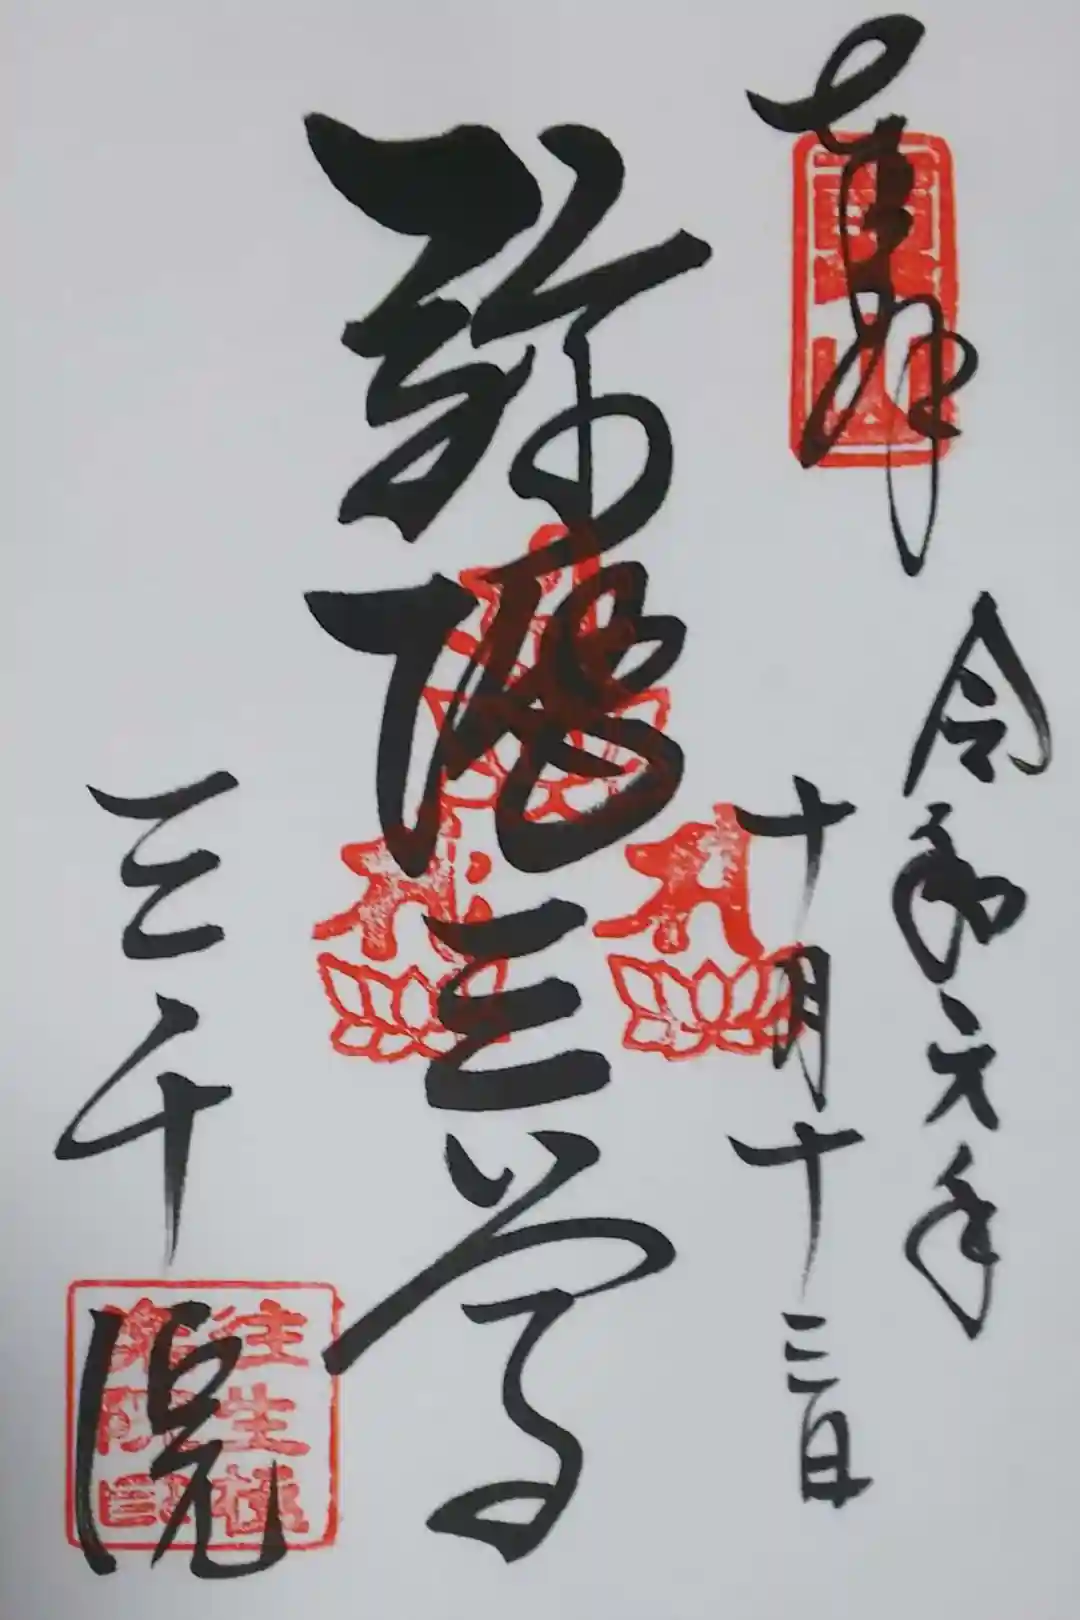 奉拝
令和元年
十月十三日
弥陀三尊
三千院
往生極
楽院印